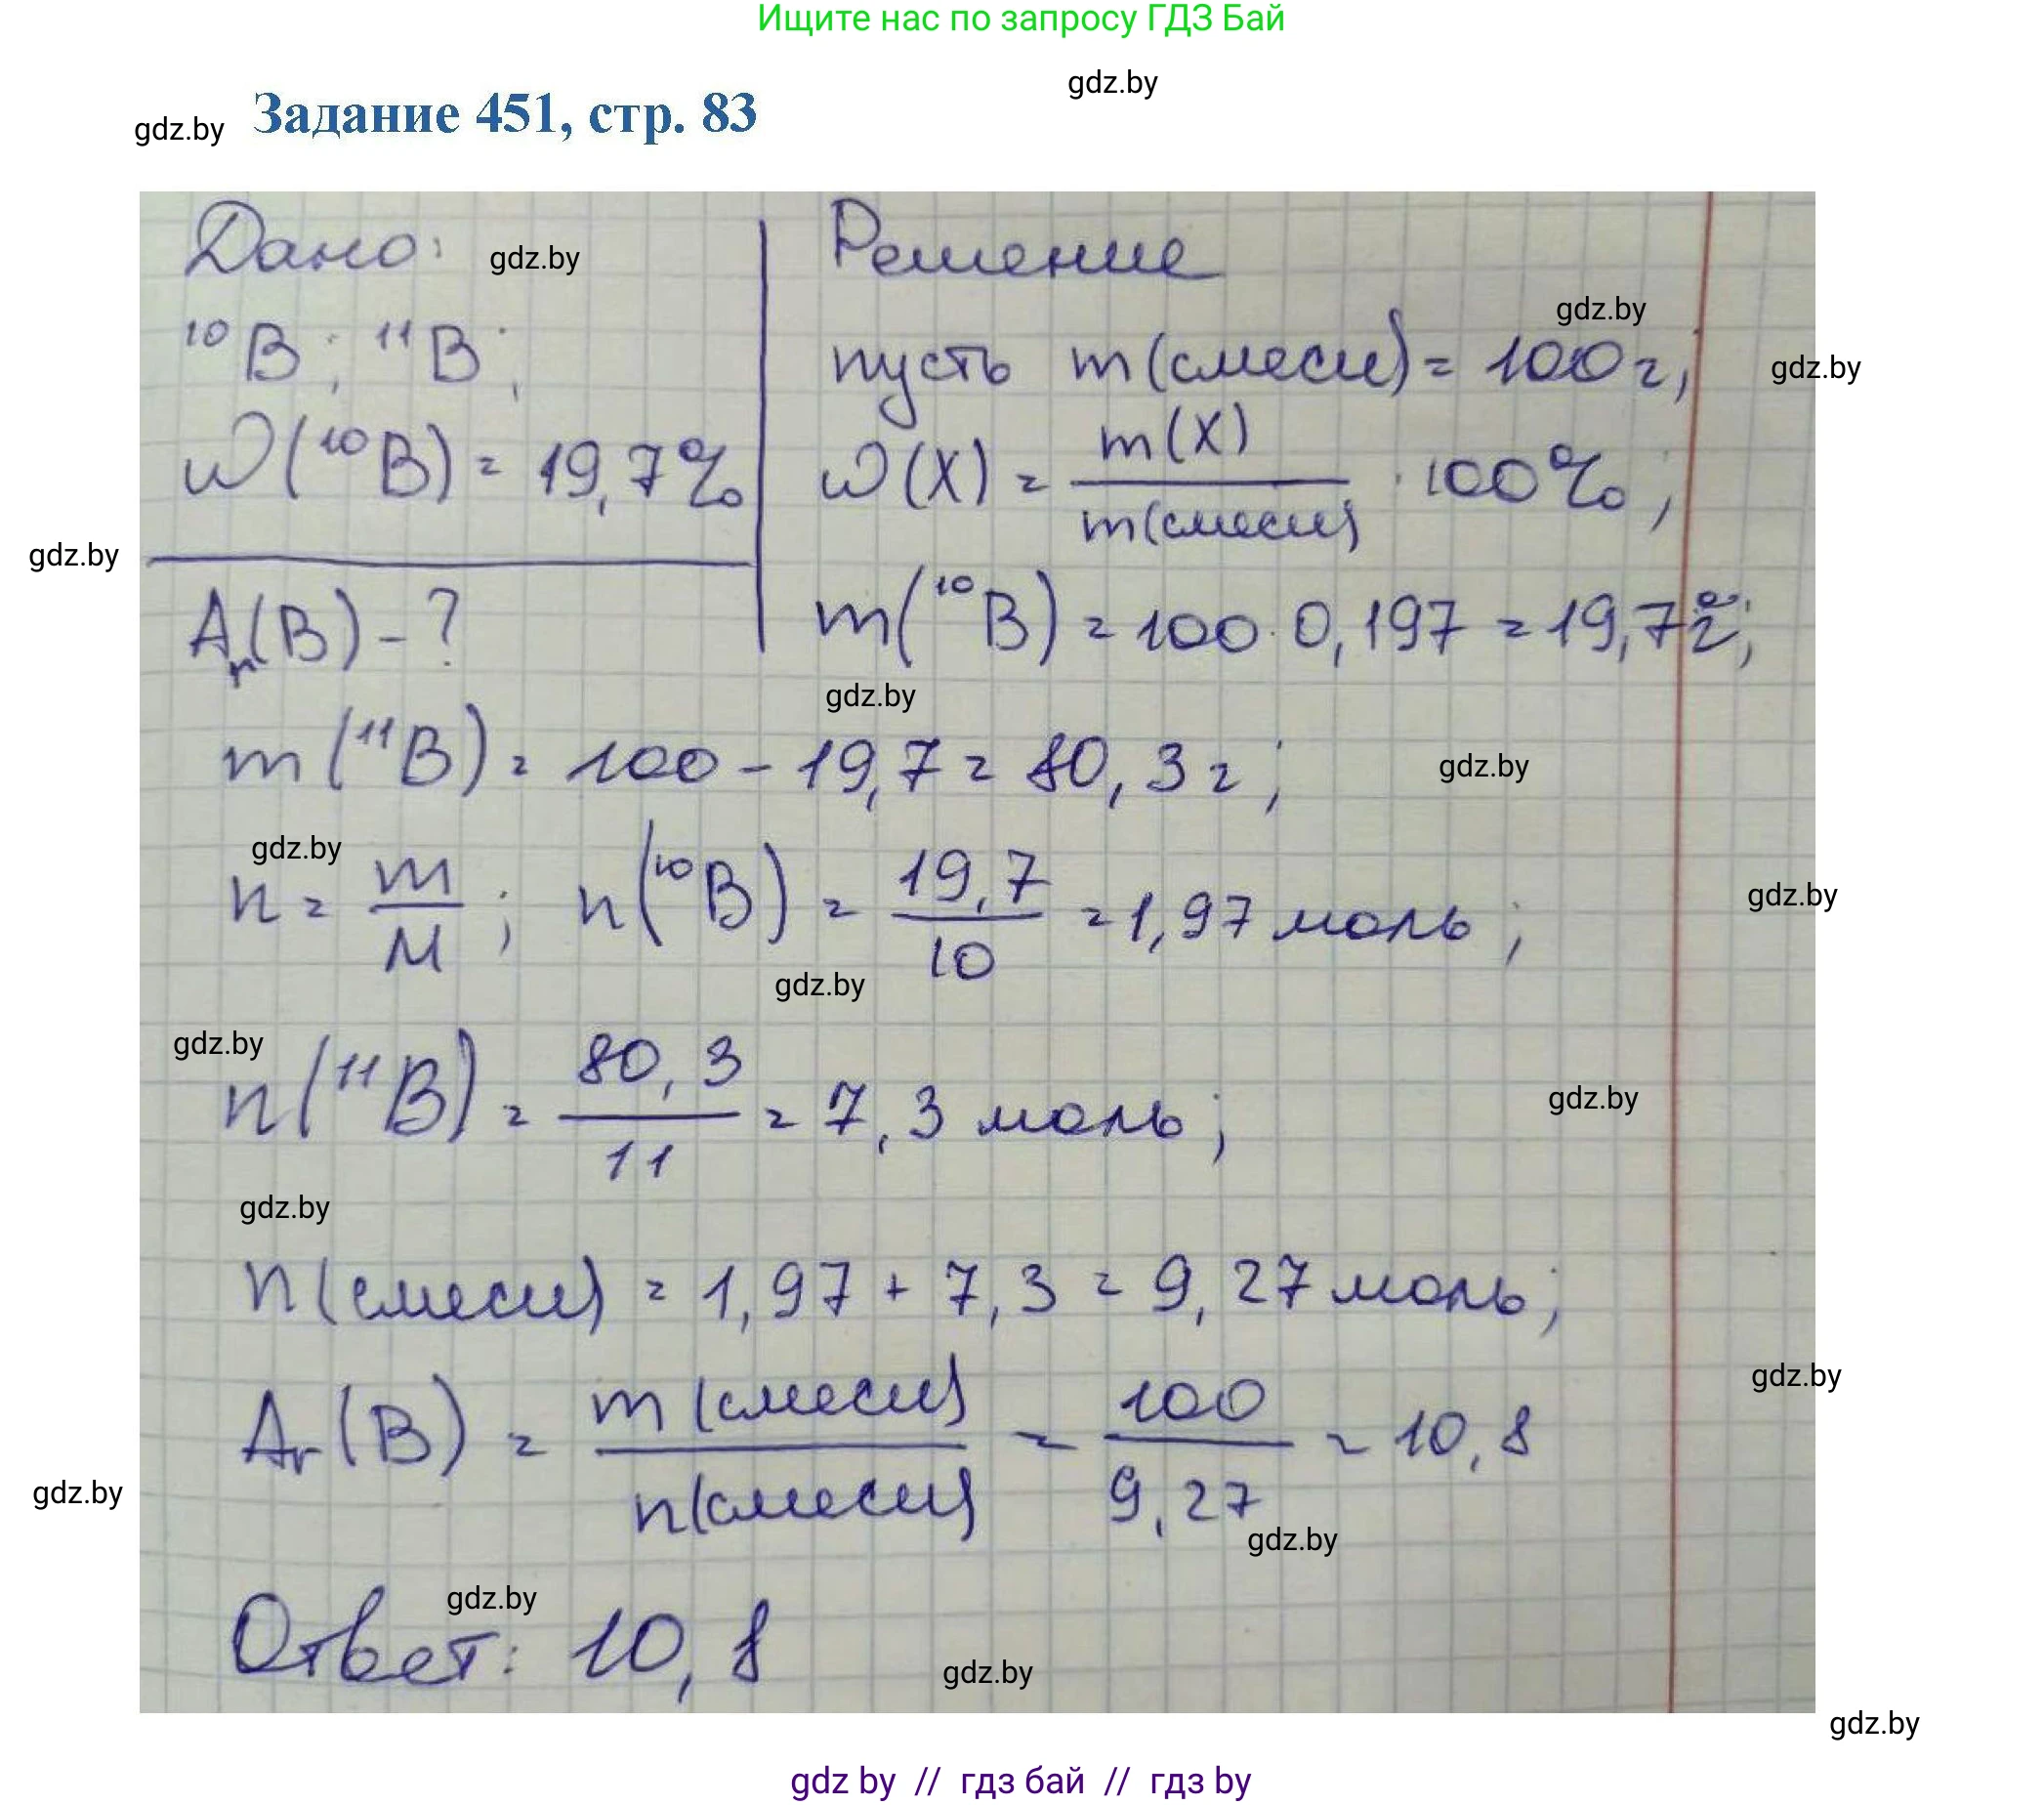 Ищите нас по запросу ГДЗ Бай
gdz.by
gdz.by Задание 451, стр. 83
Дано: gdz.by Решение
gdz.by
¹⁰B; ¹¹B; пусть m(смеси) = 100 г; gdz.by
ω(¹⁰B) = 19,7% ω(X) = m(X) / m(смеси) · 100%;
gdz.by
Ar(B) - ? m(¹⁰B) = 100 · 0,197 = 19,7 г;
gdz.by
m(¹¹B) = 100 - 19,7 = 80,3 г; gdz.by
gdz.by
n = m / M; n(¹⁰B) = 19,7 / 10 = 1,97 моль; gdz.by
gdz.by
gdz.by
n(¹¹B) = 80,3 / 11 = 7,3 моль; gdz.by
gdz.by
n(смеси) = 1,97 + 7,3 = 9,27 моль;
gdz.by
Ar(B) = m(смеси) / n(смеси) = 100 / 9,27 = 10,8
gdz.by
gdz.by
gdz.by
Ответ: 10,8
gdz.by
gdz.by
gdz by // гдз бай // гдз by